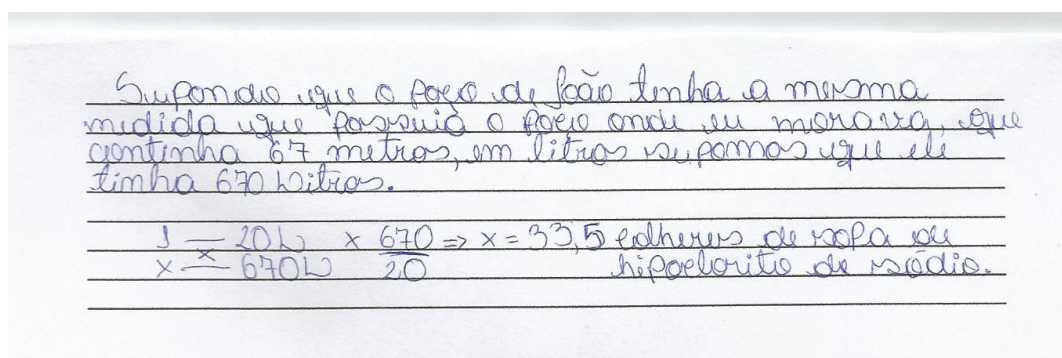 Supondo que o poço de João tenha a mesma
medida que possuia o poço onde eu morava, que
continha 67 metros, em litros supomos que ele
tinha 670 Litros.
1 — 20L x 670 => x = 33,5 colheres de sopa de
x — 670L 20 hipoclorito de sódio.